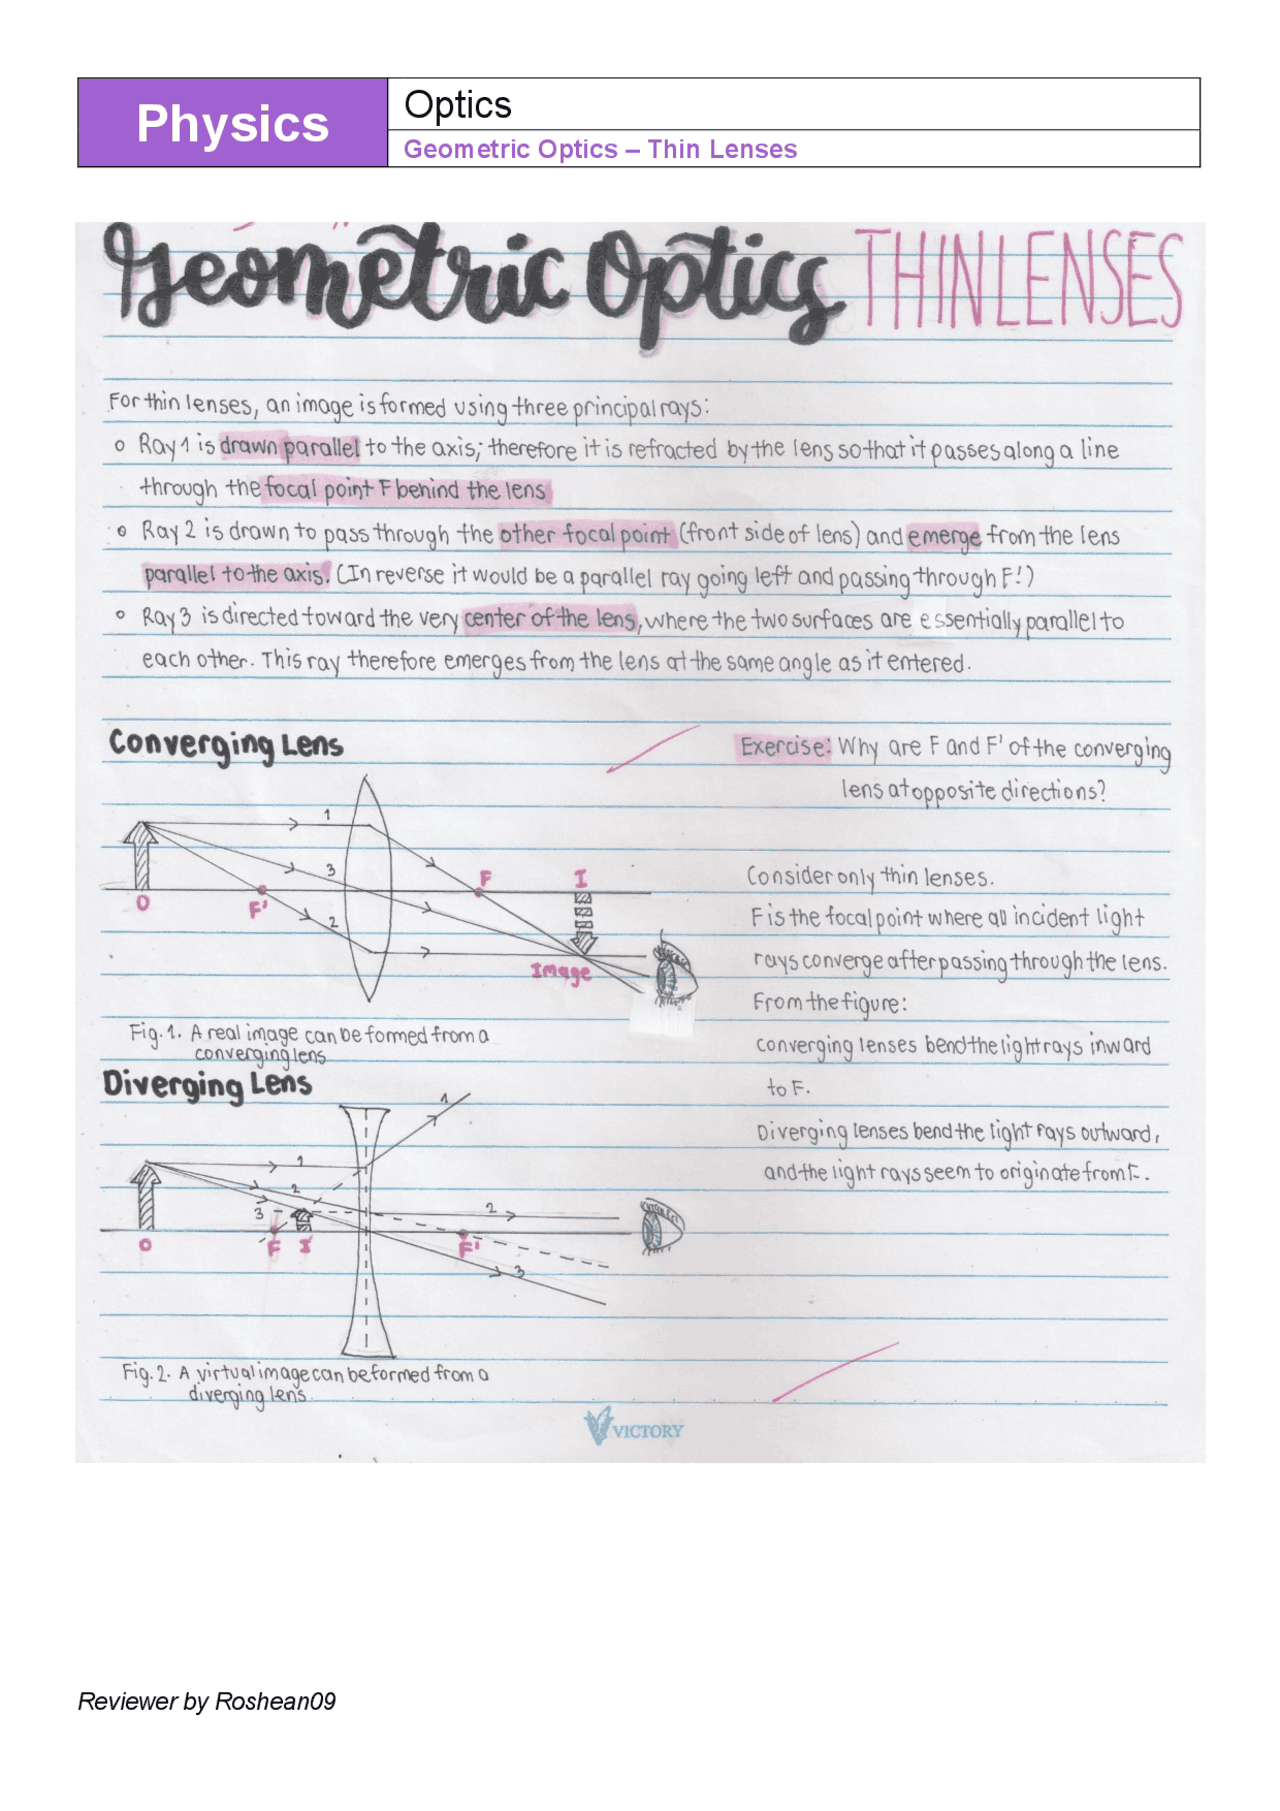 Physics
Optics
Geometric Optics – Thin Lenses
Geometric Optics THIN LENSES
For thin lenses, an image is formed using three principal rays:
o Ray 1 is drawn parallel to the axis; therefore it is refracted by the lens so that it passes along a line
through the focal point F behind the lens
o Ray 2 is drawn to pass through the other focal point (front side of lens) and emerge from the lens
parallel to the axis. (In reverse it would be a parallel ray going left and passing through F'.)
o Ray 3 is directed toward the very center of the lens, where the two surfaces are essentially parallel to
each other. This ray therefore emerges from the lens at the same angle as it entered.
Converging Lens
Exercise: Why are F and F' of the converging
lens at opposite directions?
1
3
2
O
F'
F
I
Image
Consider only thin lenses.
F is the focal point where all incident light
rays converge after passing through the lens.
From the figure:
converging lenses bend the light rays inward
to F.
Diverging lenses bend the light rays outward,
and the light rays seem to originate from F.
Fig. 1. A real image can be formed from a
converging lens
Diverging Lens
1
1
2
3
2
O
F
I
F'
3
Fig. 2. A virtual image can be formed from a
diverging lens.
VICTORY
Reviewer by Roshean09